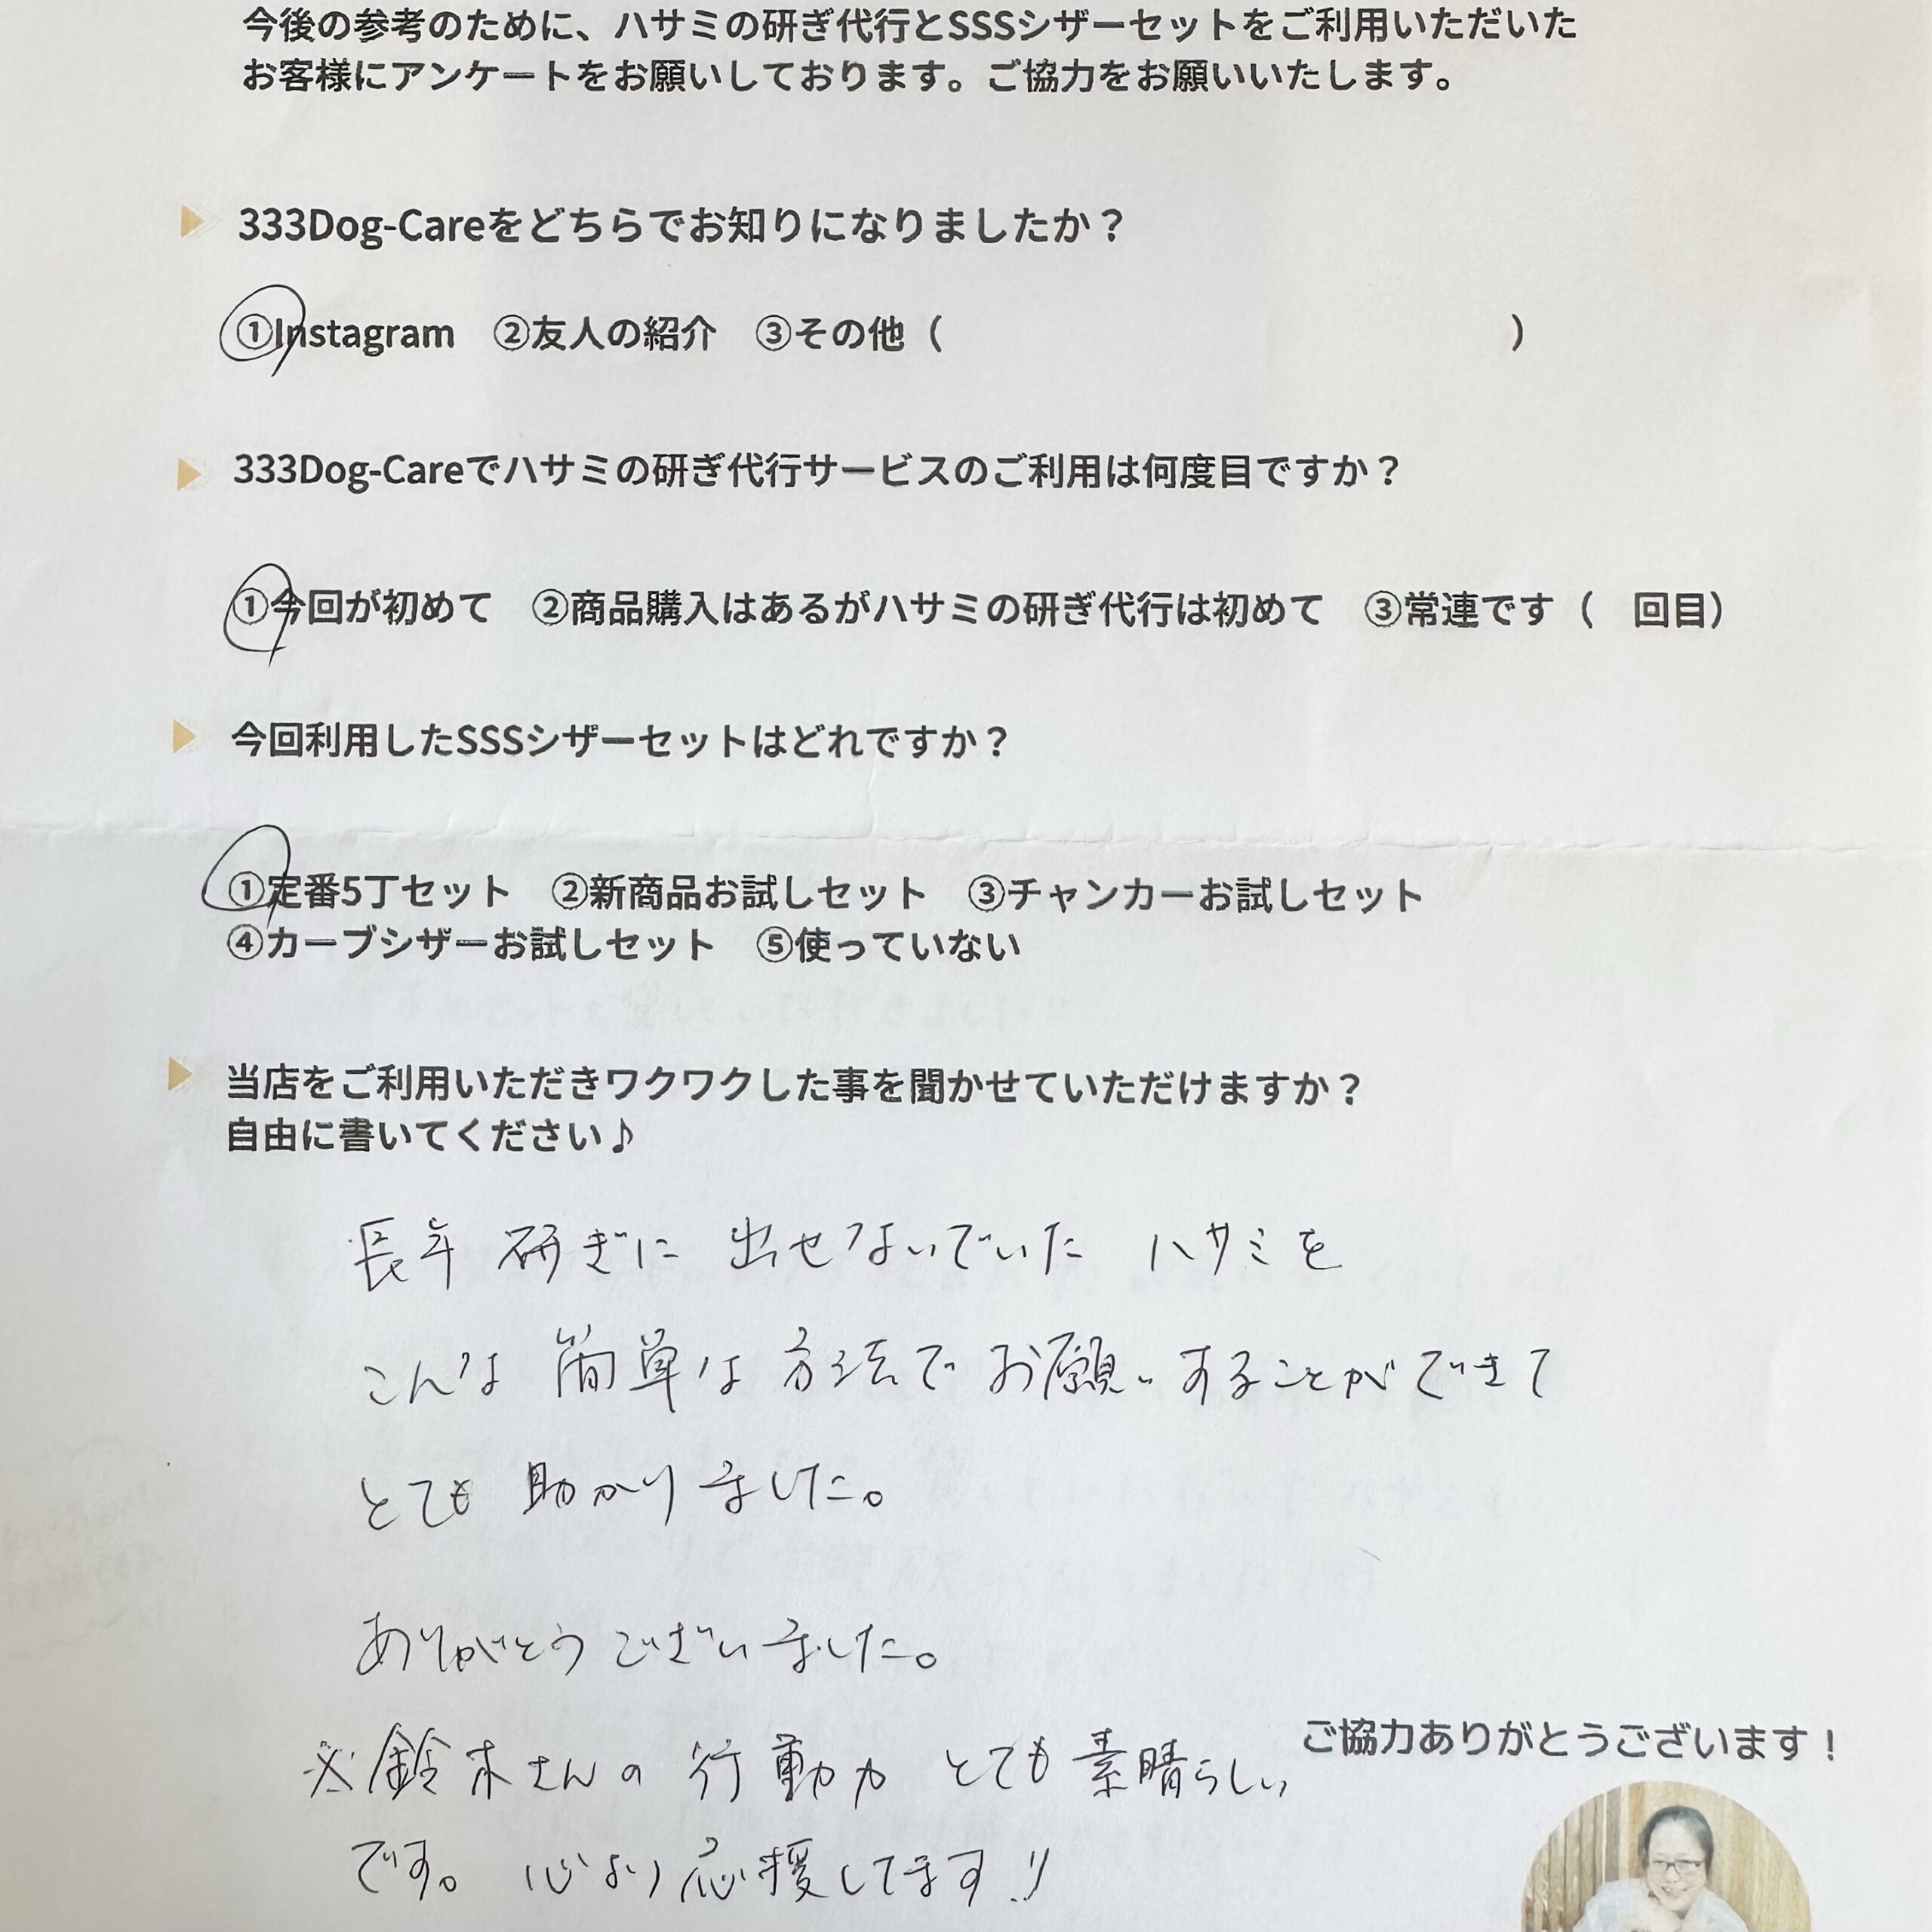 今後の参考のために、ハサミの研ぎ代行とSSSシザーセットをご利用いただいた
お客様にアンケートをお願いしております。ご協力をお願いいたします。
333Dog-Careをどちらでお知りになりましたか？
①Instagram　②友人の紹介　③その他（　　　　　　　　　　　　　　　）
333Dog-Careでハサミの研ぎ代行サービスのご利用は何度目ですか？
①今回が初めて　②商品購入はあるがハサミの研ぎ代行は初めて　③常連です（　回目）
今回利用したSSSシザーセットはどれですか？
①定番5丁セット　②新商品お試しセット　③チャンカーお試しセット
④カーブシザーお試しセット　⑤使っていない
当店をご利用いただきワクワクした事を聞かせていただけますか？
自由に書いてください♪
長年 研ぎに 出せないでいた ハサミを
こんな 簡単な 方法で お願いすることができて
とても 助かりました。
ありがとうございました。
ご協力ありがとうございます！
※鈴木さんの 行動力 とても 素晴らしい
です。 心より応援してます!!